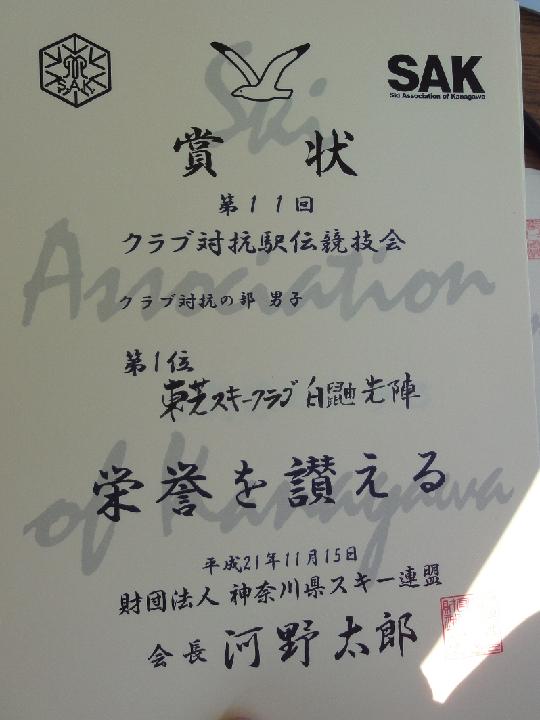 SAK
SAK
Ski Association of Kanagawa
Ski
賞状
第11回
クラブ対抗駅伝競技会
Association
クラブ対抗の部 男子
第1位
東芝スキークラブ 白鼬先陣
of Kanagawa
栄誉を讃える
平成21年11月15日
財団法人 神奈川県スキー連盟
会長 河野太郎